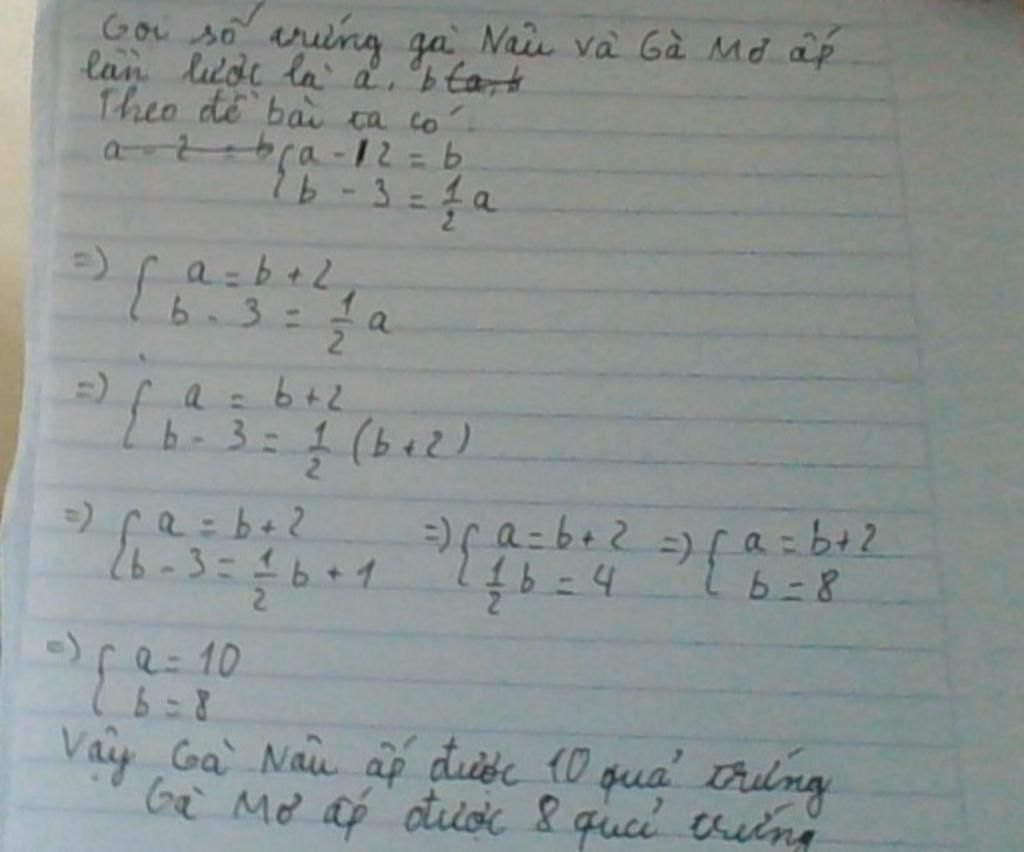 Gọi số trứng gà Nâu và Gà Mơ ấp
lần lược là a, b (a, b
Theo đề bài ta có
a - 2 = b { a - 12 = b
b - 3 = 1/2 a
=> { a = b + 2
b - 3 = 1/2 a
=> { a = b + 2
b - 3 = 1/2 (b + 2)
=> { a = b + 2 => { a = b + 2 => { a = b + 2
b - 3 = 1/2 b + 1 1/2 b = 4 b = 8
=> { a = 10
b = 8
Vậy Gà Nâu ấp được 10 quả trứng
Gà Mơ ấp được 8 quả trứng